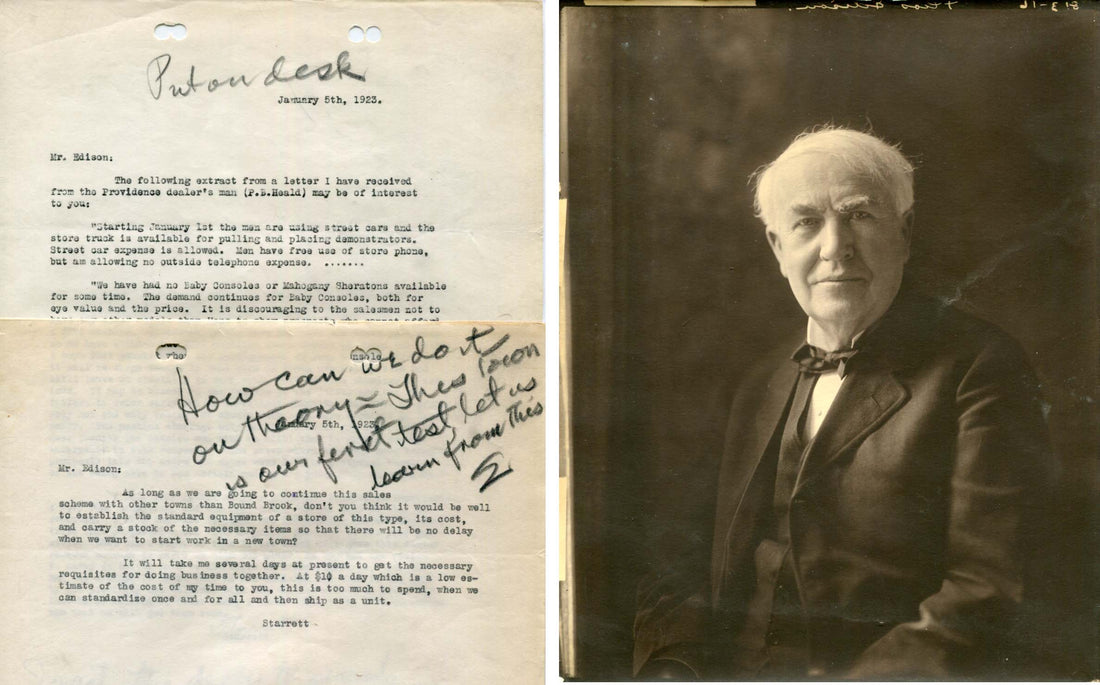 Put on desk
January 5th, 1923.
Mr. Edison:
The following extract from a letter I have received
from the Providence dealer's man (P.B.Heald) may be of interest
to you:
"Starting January 1st the men are using street cars and the
store truck is available for pulling and placing demonstrators.
Street car expense is allowed. Men have free use of store phone,
but am allowing no outside telephone expense. .......
"We have had no Baby Consoles or Mahogany Sheratons available
for some time. The demand continues for Baby Consoles, both for
eye value and the price. It is discouraging to the salesmen not to
How can we do it
on theory = This Town
is our first test let us
learn from this
E
January 5th, 1923
Mr. Edison:
As long as we are going to continue this sales
scheme with other towns than Bound Brook, don't you think it would be well
to establish the standard equipment of a store of this type, its cost,
and carry a stock of the necessary items so that there will be no delay
when we want to start work in a new town?
It will take me several days at present to get the necessary
requisites for doing business together. At $10 a day which is a low es-
timate of the cost of my time to you, this is too much to spend, when we
can standardize once and for all and then ship as a unit.
Starrett